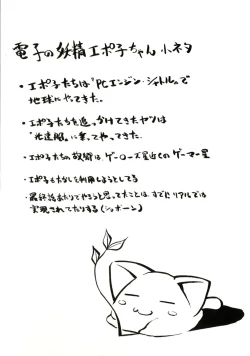 電子の妖精エポ子ちゃん 小ネタ
・エポ子たちは"PCエンジン・シャトル"で
地球にやってきた。
・エポ子たちを追っかけてきたヤツは
に乗ってやってきた。
・エポ子たちの故郷はゲーローズ星近くのゲーマー星
・エポ子もたなしを利用しようとしてる
・最終話あたりでやろうと思ってたことは、すでにリアルでは
実現されてたりする(ショボーン)